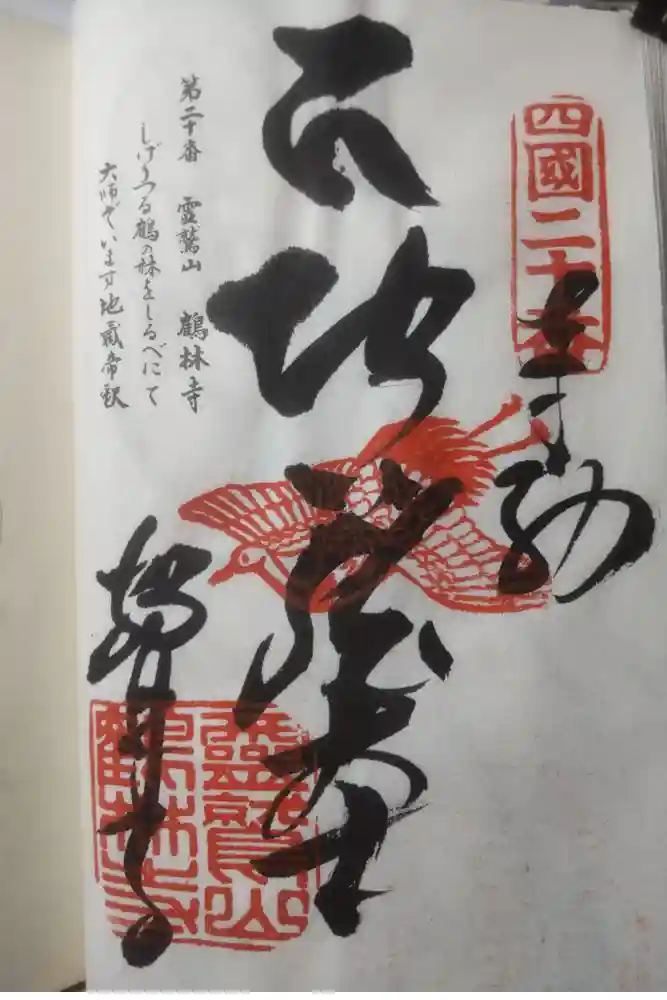 四國二十番
奉納
地蔵大士
第二十番 靈鷲山 鶴林寺
しげりつる鶴の林をしるべにて
大師ぞいます地蔵帝釈
鶴林寺
靈鷲山
鶴林寺